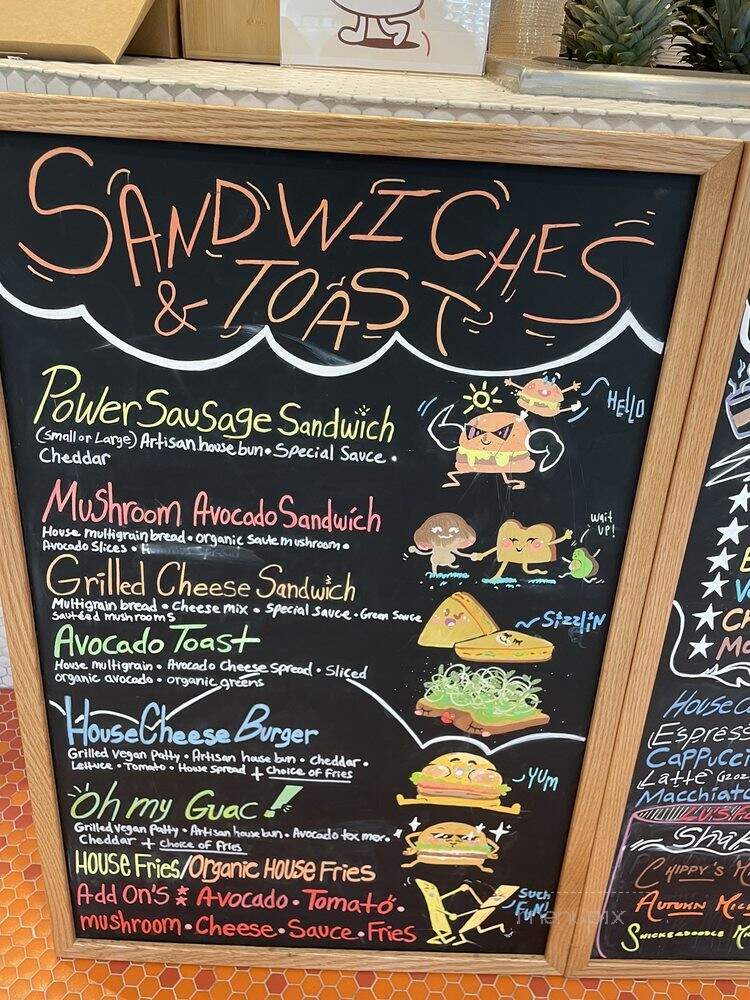 SANDWICHES
& TOAST
Power Sausage Sandwich
(Small or Large) Artisan house bun • Special Sauce •
Cheddar
HELLO
Mushroom Avocado Sandwich
House multigrain bread • organic saute mushroom •
Avocado Slices •
Wait
UP!
Grilled Cheese Sandwich
Multigrain bread • Cheese mix • Special sauce • Green Sauce
Sautéed mushrooms
SizzlIN
Avocado Toast
House multigrain • Avocado Cheese Spread • Sliced
organic avocado • organic greens
House Cheese Burger
Grilled Vegan Patty • Artisan house bun • Cheddar •
Lettuce • Tomato • House Spread + Choice of Fries
YUM
Oh my Guac!
Grilled Vegan Patty • Artisan house bun • Avocado tex mex •
Cheddar + choice of Fries
HOUSE FRIES/ORGANIC HOUSE FRIES
Add On's : Avocado • Tomato •
mushroom • Cheese • Sauce • Fries
Such
FuN!
menupix
House C
Espress
Cappucci
Latte
Macchiato
Shak
CHIPPY'S M
AUTUMN
SNICKERDOODLE